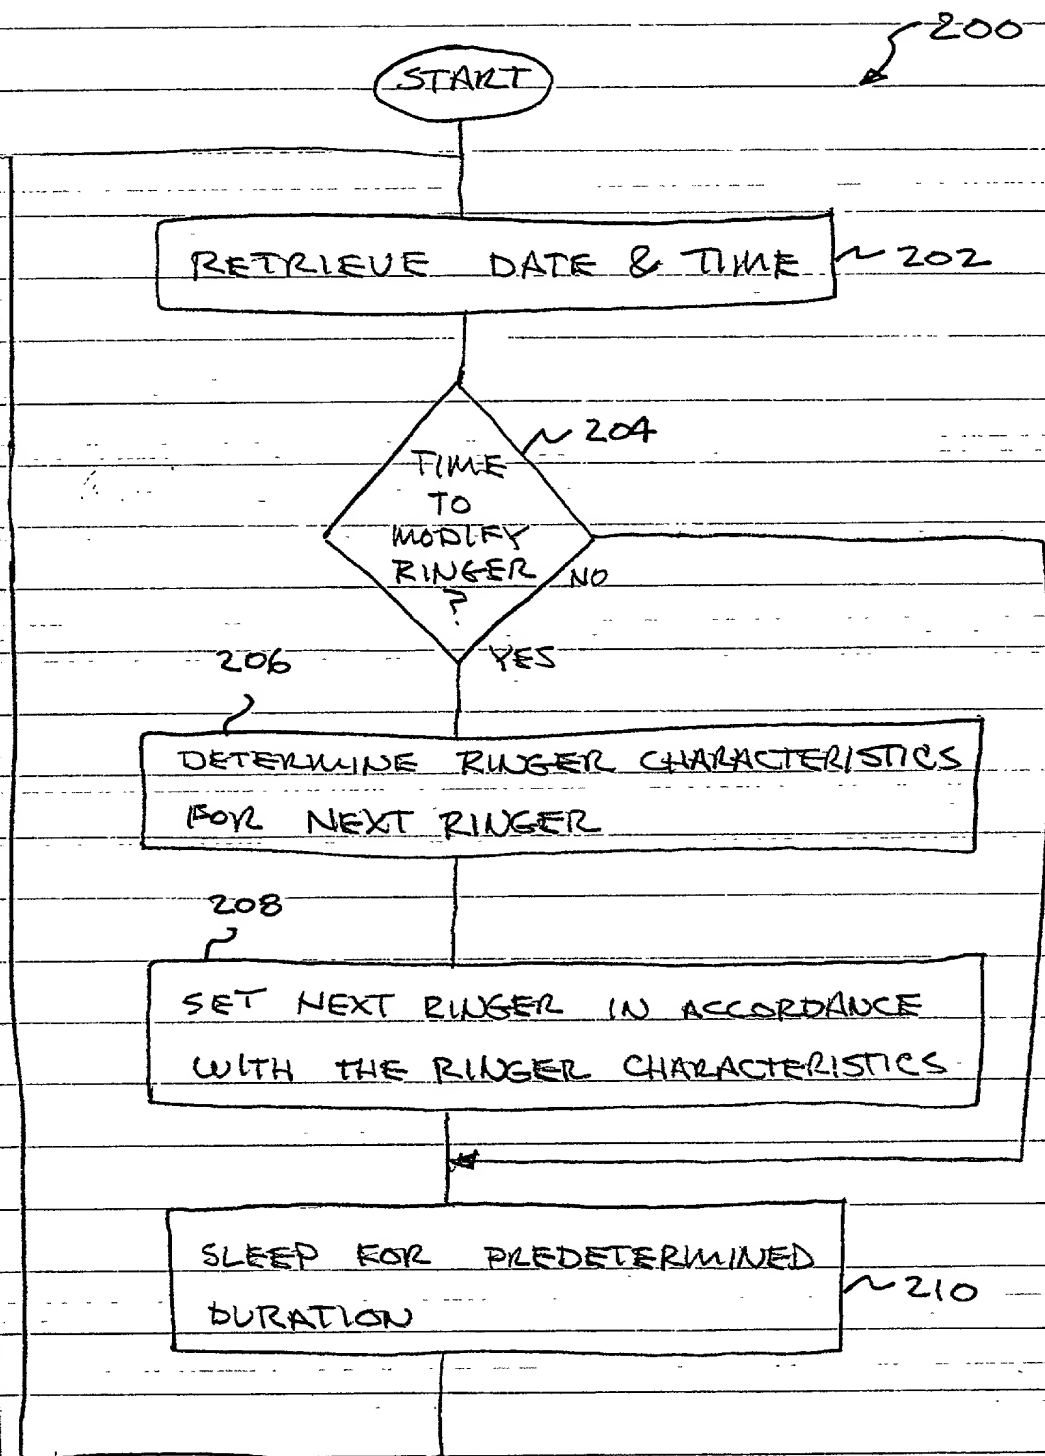 200
START
RETRIEVE DATE & TIME
202
204
TIME
TO
MODIFY
RINGER
?
NO
YES
206
DETERMINE RINGER CHARACTERISTICS
FOR NEXT RINGER
208
SET NEXT RINGER IN ACCORDANCE
WITH THE RINGER CHARACTERISTICS
SLEEP FOR PREDETERMINED
DURATION
210